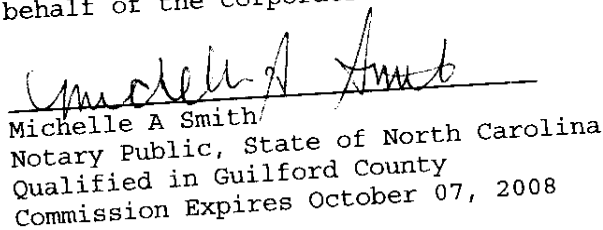 behalf of the
Michelle A Smith
Michelle A Smith
Notary Public, State of North Carolina
Qualified in Guilford County
Commission Expires October 07, 2008